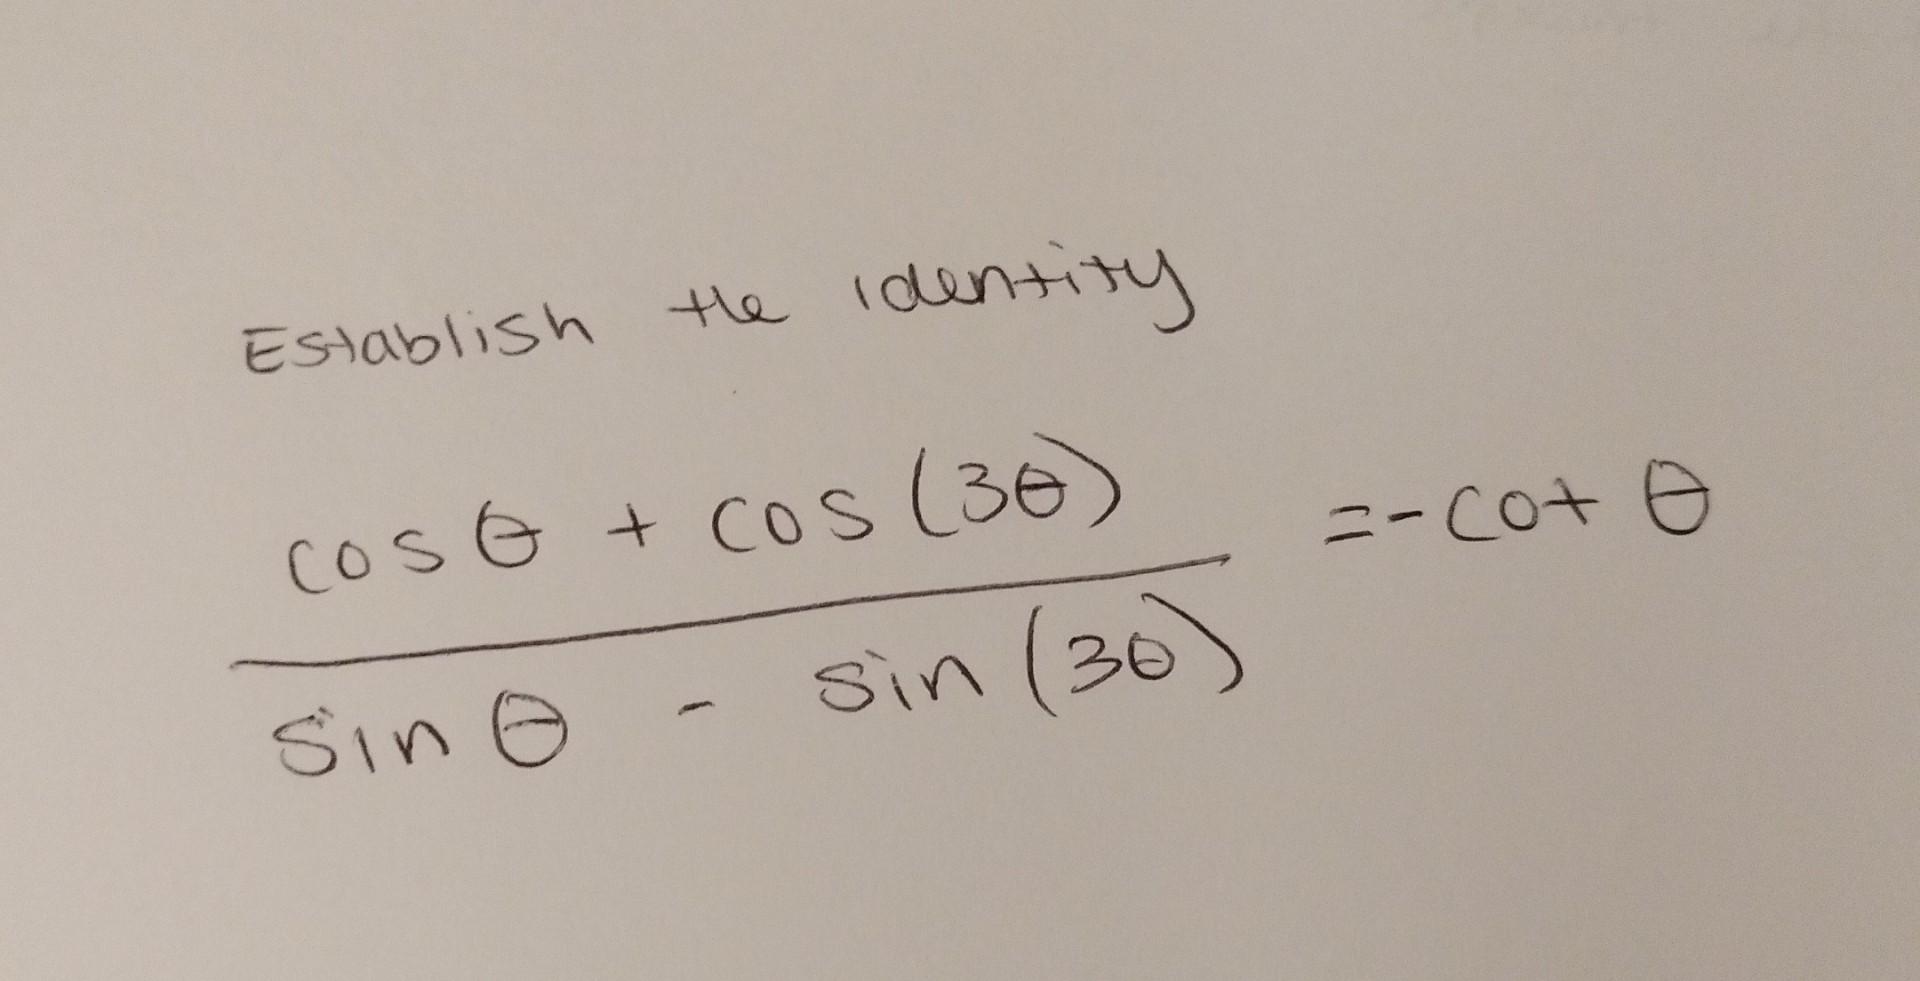 Establish the identity
cos θ + cos (3θ)
= - cot θ
sin θ - sin (3θ)